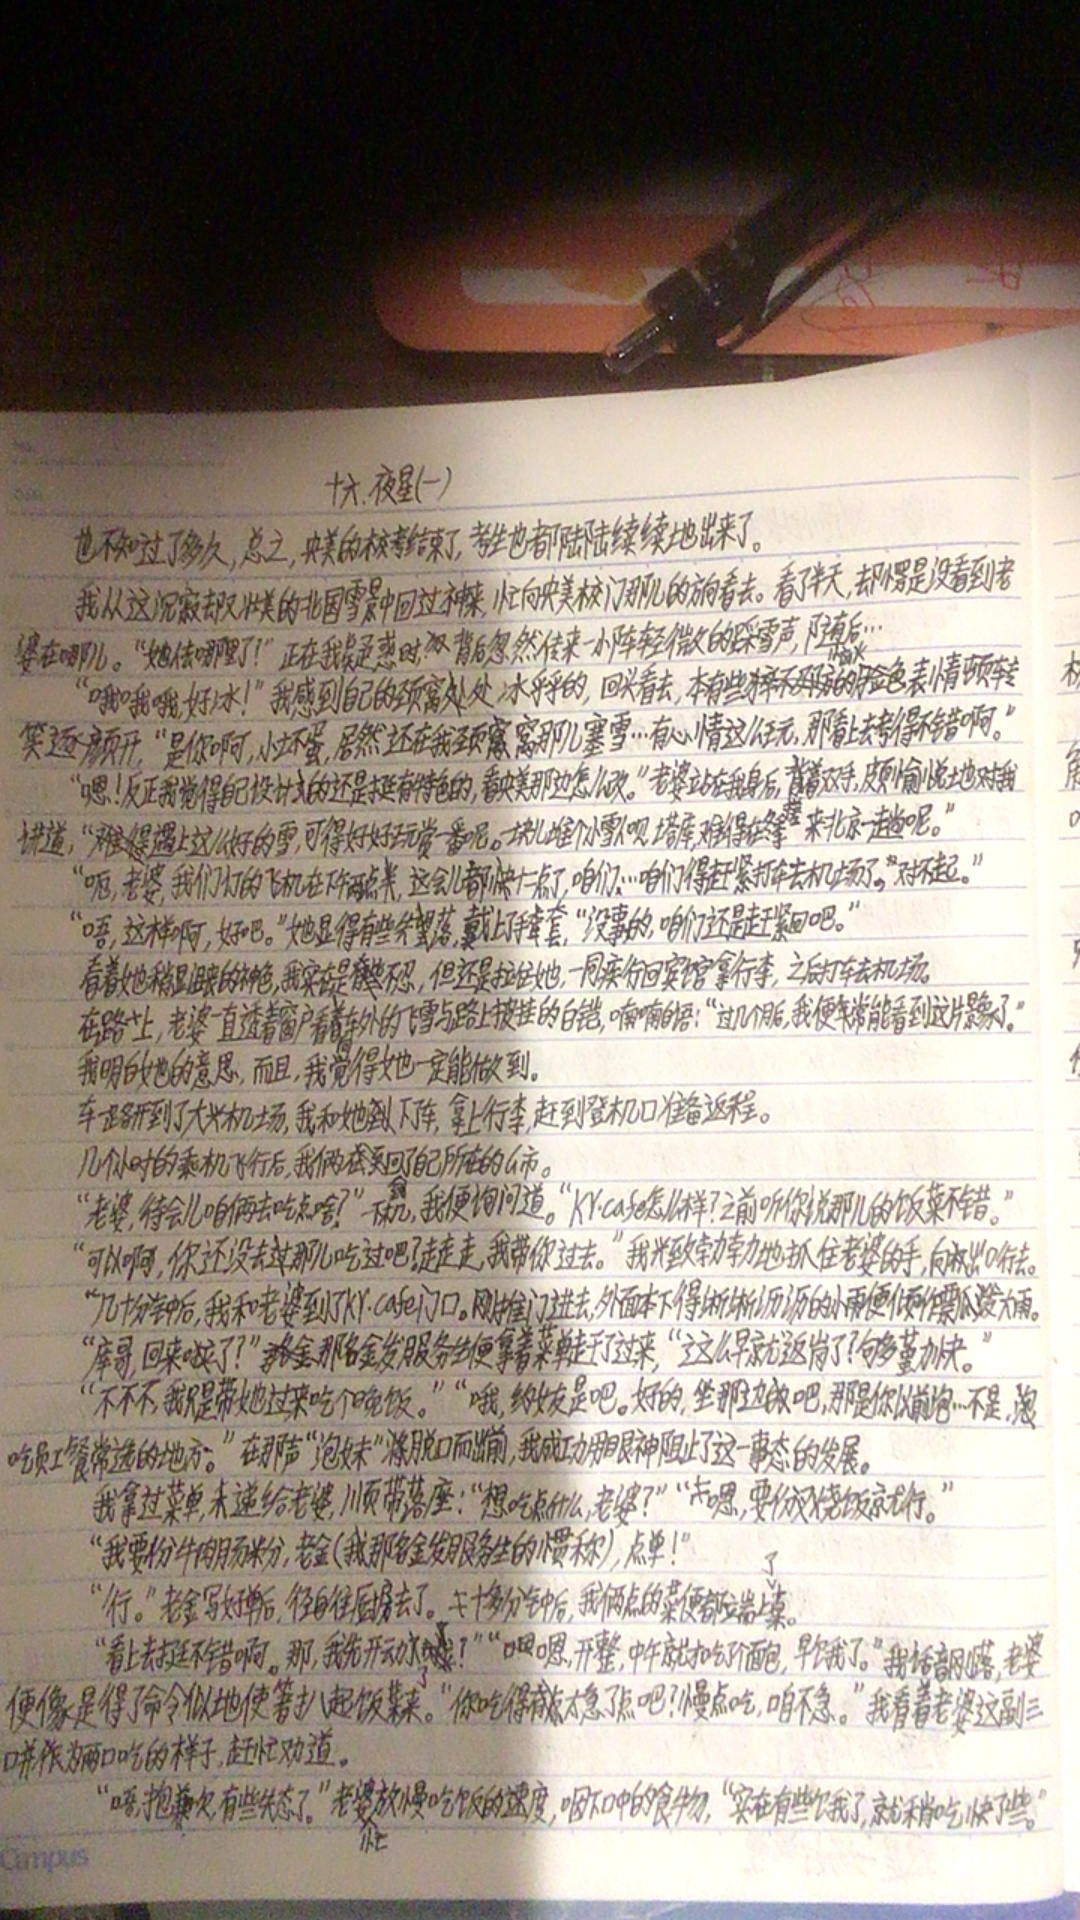 十六.夜星(一)
也不知过了多久,总之,央美的校考结束了,考生也都陆陆续续地出来了。
我从这沉寂却又壮美的北国雪景中回过神来,忙向央美校门那儿的方向看去。看了半天,却愣是没看到老
婆在哪儿。“她去哪里了!”正在我疑惑时,背后忽然传来一小阵轻微的踩雪声,随后…
“哦哦哦,好冰!”我感到自己的颈窝处冰乎乎的,回头看去,本有些的金色表情顿转
笑逐颜开,“是你啊,小坏蛋,居然还在我颈窝那儿塞雪…有心情这么玩,那看上去考得不错啊。”
“嗯!反正我觉得自己设计的还是挺有特色的,看央美那边怎么改。”老婆站在我身后,背着双手,颇愉悦地对我
讲道,“难得遇上这么好的雪,可得好好玩赏一番呢。一块儿堆个小雪人呗,塔库,难得在冬季来北京一趟呢。”
“呃,老婆,我们订的飞机在下午两点半,这会儿都快十二点了,咱们…咱们得赶紧打车去机场了。”“对不起。”
“唔,这样啊,好吧。”她显得有些失落,戴上了手套,“没事的,咱们还是赶紧回吧。”
看着她稍显沮丧的神色,我实在是不忍,但还是拉住她,一同疾行回宾馆拿行李,之后打车去机场。
在路上,老婆一直透着窗户看着车外的飞雪与路上披挂的白铠,喃喃自语:“过几个月后,我便常常能看到这片景象了。”
我明白她的意思,而且,我觉得她也一定能做到。
车一路开到了大兴机场,我和她下车,拿上行李,赶到登机口准备返程。
几个小时的乘机飞行后,我俩回了自己所在的G市。
“老婆,待会儿咱俩去吃点啥?”一下机,我便询问道。“KY·cafe怎么样?之前听你说那儿的饭菜不错。”
“可以啊,你还没去过那儿吃过吧?走走走,我带你过去。”我兴致勃勃地抓住老婆的手,向出口行去。
几十分钟后,我和老婆到了KY·cafe门口。刚推门进去,外面本下得淅淅沥沥的小雨便倾作瓢泼大雨。
“库哥,回来啦?”那名金发服务生便拿着菜单走了过来,“这么早就返岗了?句多堇力快。”
“不不不,我只是带她过来吃个晚饭。”“哦,约女友是吧。好的,坐那边吧,那是你以前泡…不是,
吃员工餐常选的地方。”在那声“泡妹”将脱口而出前,我成功用眼神阻止了这一事态的发展。
我拿过菜单,递给老婆,顺带落座:“想吃点什么,老婆?”“嗯,要份叉烧饭就行。”
“我要份牛肉肠米分,老金(我那名金发服务生的惯称),点单!”
“行。”老金写好单后,径自往厨房去了。十多分钟后,我俩点的菜便都端上了桌。
“看上去挺不错啊。那,我先开动?”“嗯嗯,开整,中午就扣吃个面包,早饿我了。”我话音刚落,老婆
便像是得了命令似地使箸扒起饭菜来。“你吃得有点太急了点吧?慢点吃,咱不急。”我看着老婆这副三
口并作为两口吃的样子,赶忙劝道。
“唔,抱歉,有些失态了。”老婆忙放慢吃饭的速度,咽下口中的食物,“实在有些饿我了,就稍吃快了些。”
Campus